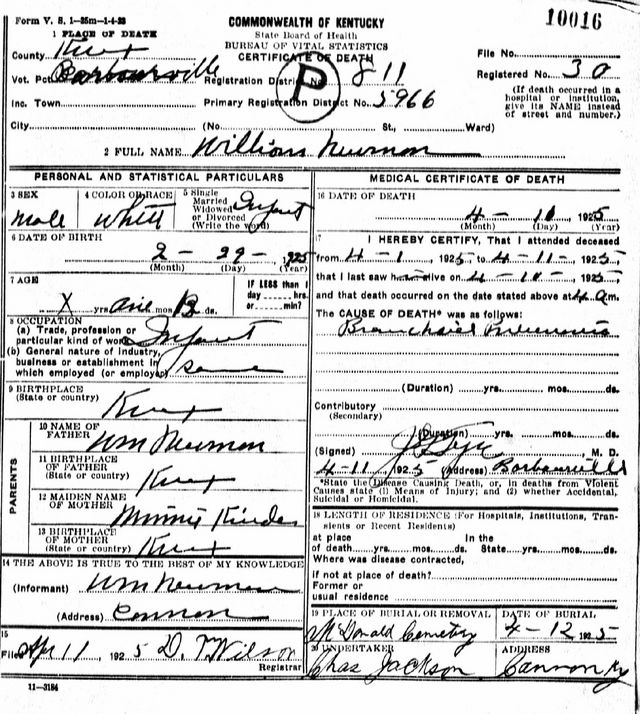 Form V. S. 1—25m—1-4-23
COMMONWEALTH OF KENTUCKY
10016
1 PLACE OF DEATH
State Board of Health
BUREAU OF VITAL STATISTICS
CERTIFICATE OF DEATH
County Knox
File No.
Vot. Pct. Barbourville Registration District No. 811
Registered No. 30
P
Inc. Town Primary Registration District No. 5966
(If death occurred in a hospital or institution, give its NAME instead of street and number.)
City (No. St., Ward)
2 FULL NAME William Newman
PERSONAL AND STATISTICAL PARTICULARS
3 SEX Male
4 COLOR OR RACE White
5 Single Married Widowed or Divorced (Write the word) Infant
6 DATE OF BIRTH
2 - 29 - 1925
(Month) (Day) (Year)
7 AGE
IF LESS than 1 day hrs. or min.?
X yrs. one mos. 12 ds.
8 OCCUPATION
(a) Trade, profession or particular kind of work Infant
(b) General nature of industry, business or establishment in which employed (or employer) same
9 BIRTHPLACE
(State or country) Knox
PARENTS
10 NAME OF FATHER Wm Newman
11 BIRTHPLACE OF FATHER
(State or country) Knox
12 MAIDEN NAME OF MOTHER Minnie
13 BIRTHPLACE OF MOTHER
(State or country) Knox
14 THE ABOVE IS TRUE TO THE BEST OF MY KNOWLEDGE
(Informant) Wm Newman
(Address) Cannon
15
Filed Apr 11, 1925 D. T. Wilson
Registrar
11—3184
MEDICAL CERTIFICATE OF DEATH
16 DATE OF DEATH
4 - , 1925
(Month) (Day) (Year)
17 I HEREBY CERTIFY, That I attended deceased
from 4-1, 1925 to 4-11-, 1925
that I last saw h alive on 4-10-, 1925,
and that death occurred on the date stated above at 4 a.m.
The CAUSE OF DEATH* was as follows:
Bronchial Pneumonia
(Duration) yrs. mos. ds.
Contributory
(Secondary)
(Duration) yrs. mos. ds.
(Signed) , M. D.
4-11, 1925 (Address) Barbourville
*State the Disease Causing Death, or, in deaths from Violent Causes state (1) Means of Injury; and (2) whether Accidental, Suicidal or Homicidal.
18 LENGTH OF RESIDENCE (For Hospitals, Institutions, Transients or Recent Residents)
at place In the
of death yrs. mos. ds. State yrs. mos. ds.
Where was disease contracted,
If not at place of death?
Former or
usual residence
19 PLACE OF BURIAL OR REMOVAL
McDonald Cemetery
DATE OF BURIAL
4-12, 1925
20 UNDERTAKER
Chas Jackson
ADDRESS
Cannon Ky